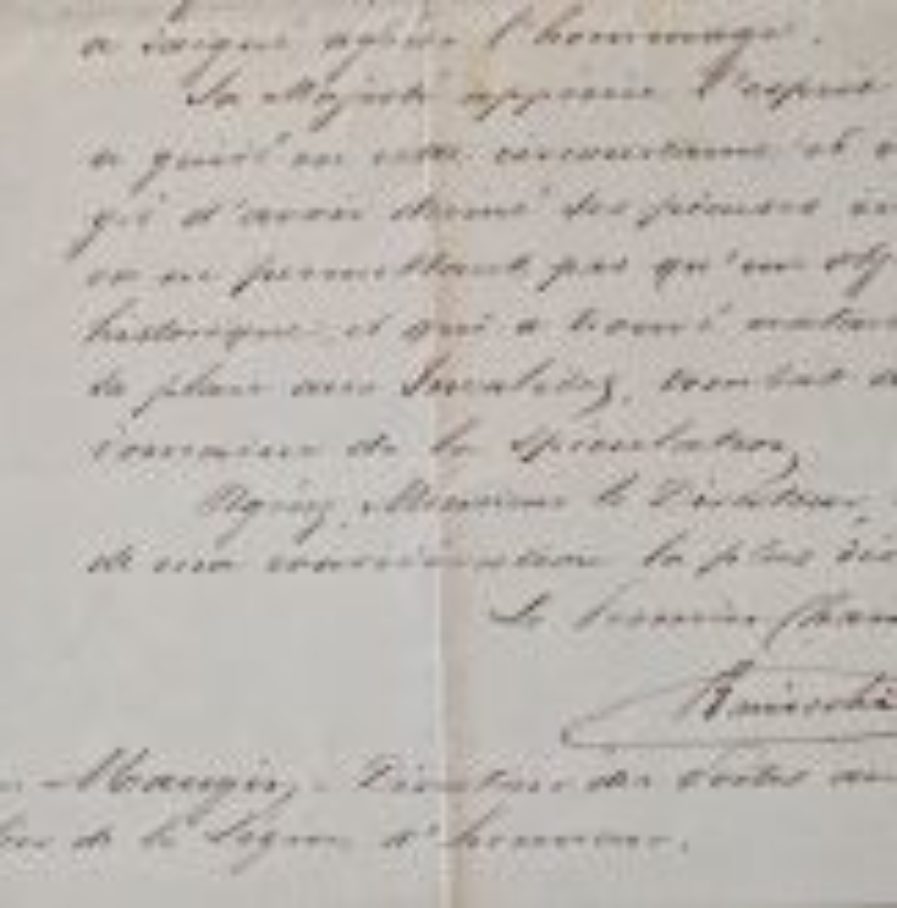 a daigné agréer l'hommage.
Sa Majesté apprécie l'esprit
a guidé en cette circonstance et
d'avoir donné ses pieuses
en ne permettant pas qu'un obj
historique et qui a trouvé
sa place aux Invalides, tombât
de la spéculation,
Agréez, Monsieur le Directeur,
de ma considération la plus dis
Le Premier Cham
Maugin, Directeur des Postes
de la Légion d'honneur.